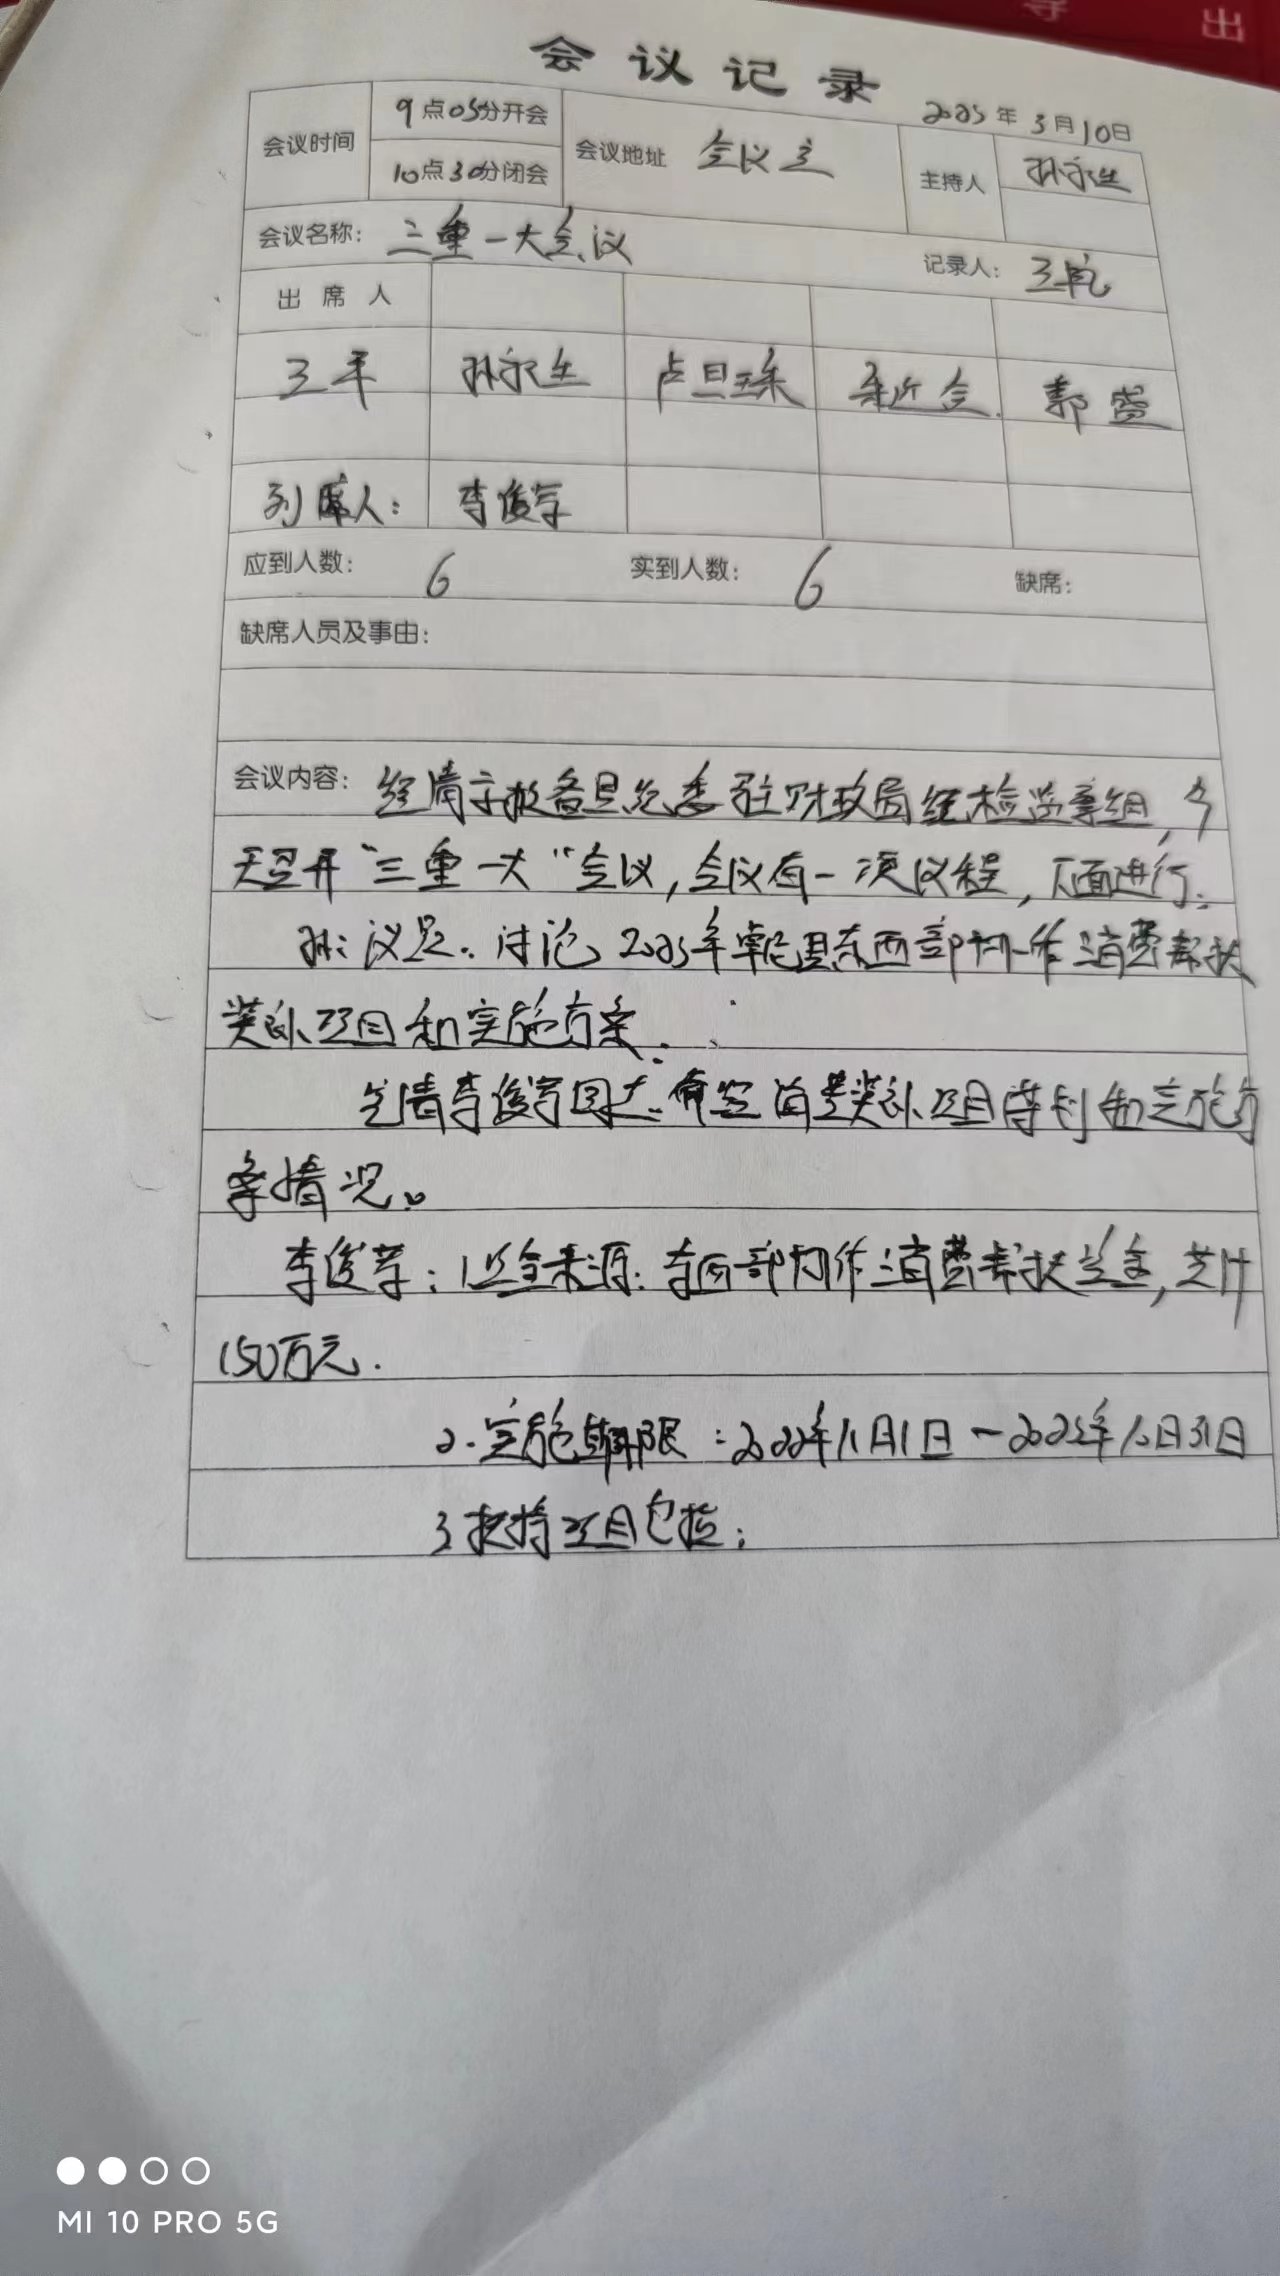 导 出
会 议 记 录
2025年3月10日
会议时间 9点05分开会 会议地址 会议室 主持人 孙永生
10点30分闭会
会议名称: 三重一大会议 记录人: 王乾
出 席 人
王平 孙永生 卢旦 会 郭
列席人: 李俊芳
应到人数: 6 实到人数: 6 缺席:
缺席人员及事由:
会议内容: 经请示报备县纪委驻财政局纪检监察组,今
天召开“三重一大”会议,会议有一项议程,下面进行:
孙:议题:讨论2025年 县东西部协作消费帮扶
奖补项目和实施方案.
先请李俊芳同志 奖补项目 和实施方
案情况。
李俊芳:1资金来源:东西部协作消费帮扶资金,共计
150万元.
2.实施期限:2024年11月1日-2025年10月31日
3扶持项目包括:
MI 10 PRO 5G